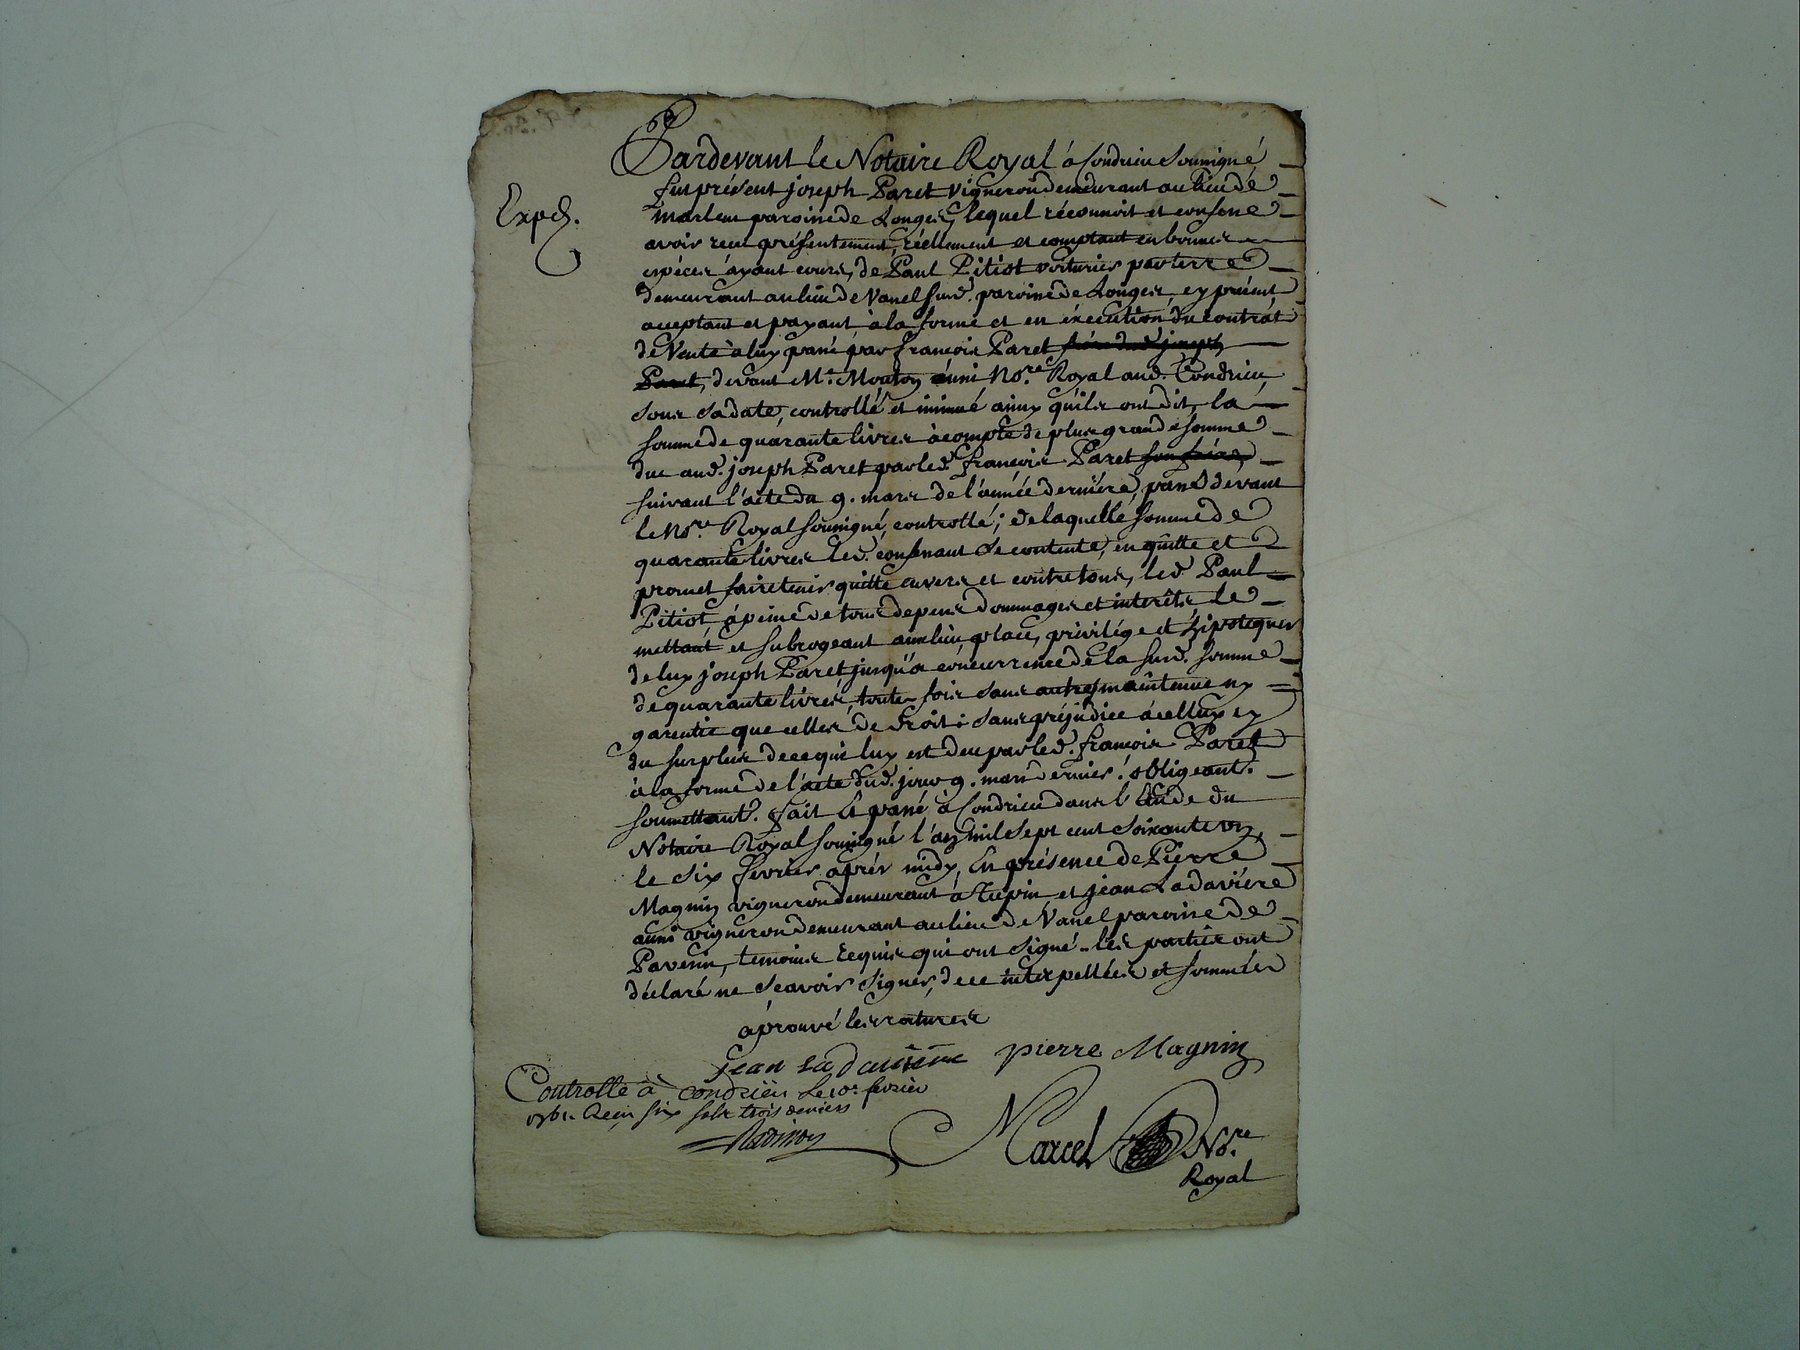 Pardevant le Notaire Royal à Condrieu Soussigné
Expéd.
fut présent joseph Paret vigneron demeurant au lieu de
marlem paroisse de Longes, lequel réconnoit et confesse
avoir reçu présentement, réellement et comptant en bonnes
espéces áyant cours, de Paul Pitiot voiturier par terre
demeurant au lieu de Vanel susd. paroisse de Longes, cy présent
acceptant et payant à la forme et en éxecution du contrát
de Vente à luy passé par françois Paret frére dud. joseph
Paret, devant Me. Mouton aussi Nore. Royal aud. Condrieu,
sous sa date, controllé et insinué ainsy qu'ils ont dit, la
somme de quarante livres àcompte de plus grande somme
due aud. joseph Paret par led. françois Paret son frére,
suivant l'acte du 9. mars de l'année derniére, passé devant
le Nore. Royal soussigné, controllé; de laquelle somme de
quarante livres led. confessant se contente, en quitte et
promet faire tenir quitte envers et contre tous, led. Paul
Pitiot, à peine de tous depens dommages et interêts le
mettant et subrogeant au lieu, place, privilége et hipoteques
de luy joseph Paret jusqu'à concurrence de la susd. somme
de quarante livres, toute-fois sans autre maintenue ny
garentie que celles de droit: sans préjudice à celluy cy
du surplus de ce qui luy est deu par led. françois Paret
à la forme de l'acte dud. jour 9. mars dernier. obligeant.
soumettant. fait et passé à Condrieu dans l'Etude du
Notaire Royal soussigné l'an mil sept cent soixante un,
le six fevrier aprés midy, En présence de Pierre
Magnin vigneron demeurant à Tupin et jean Ladaviére
aussi vigneron demeurant au lieu de Vanel paroisse de
Pavesin, temoins requis qui ont signé.. les parties ont
déclaré ne sçavoir signer, de ce interpellées et sommées
àprouvé les ratures
jean la daviere pierre Magnin
Controllé à Condrieu le 10e. fevrier
1761. Reçu six sols trois deniers
Marcel Nore.
Royal